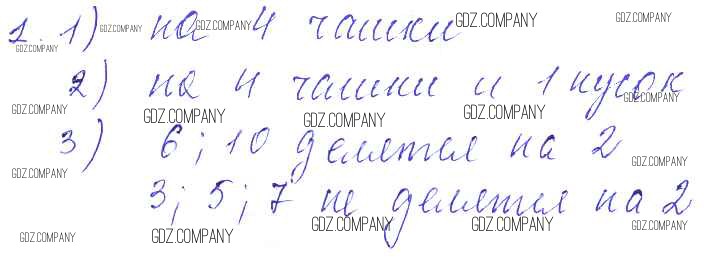 1. 1) на 4 чашки
2) на 4 чашки и 1 кусок
3) 6; 10 делятся на 2
3; 5; 7 не делятся на 2
GDZ.COMPANY GDZ.COMPANY GDZ.COMPANY GDZ.COMPANY
GDZ.COMPANY GDZ.COMPANY GDZ.COMPANY GDZ.COMPANY GDZ.COMPANY
GDZ.COMPANY GDZ.COMPANY
GDZ.COMPANY GDZ.COMPANY GDZ.COMPANY GDZ.COMPANY GDZ.COMPANY